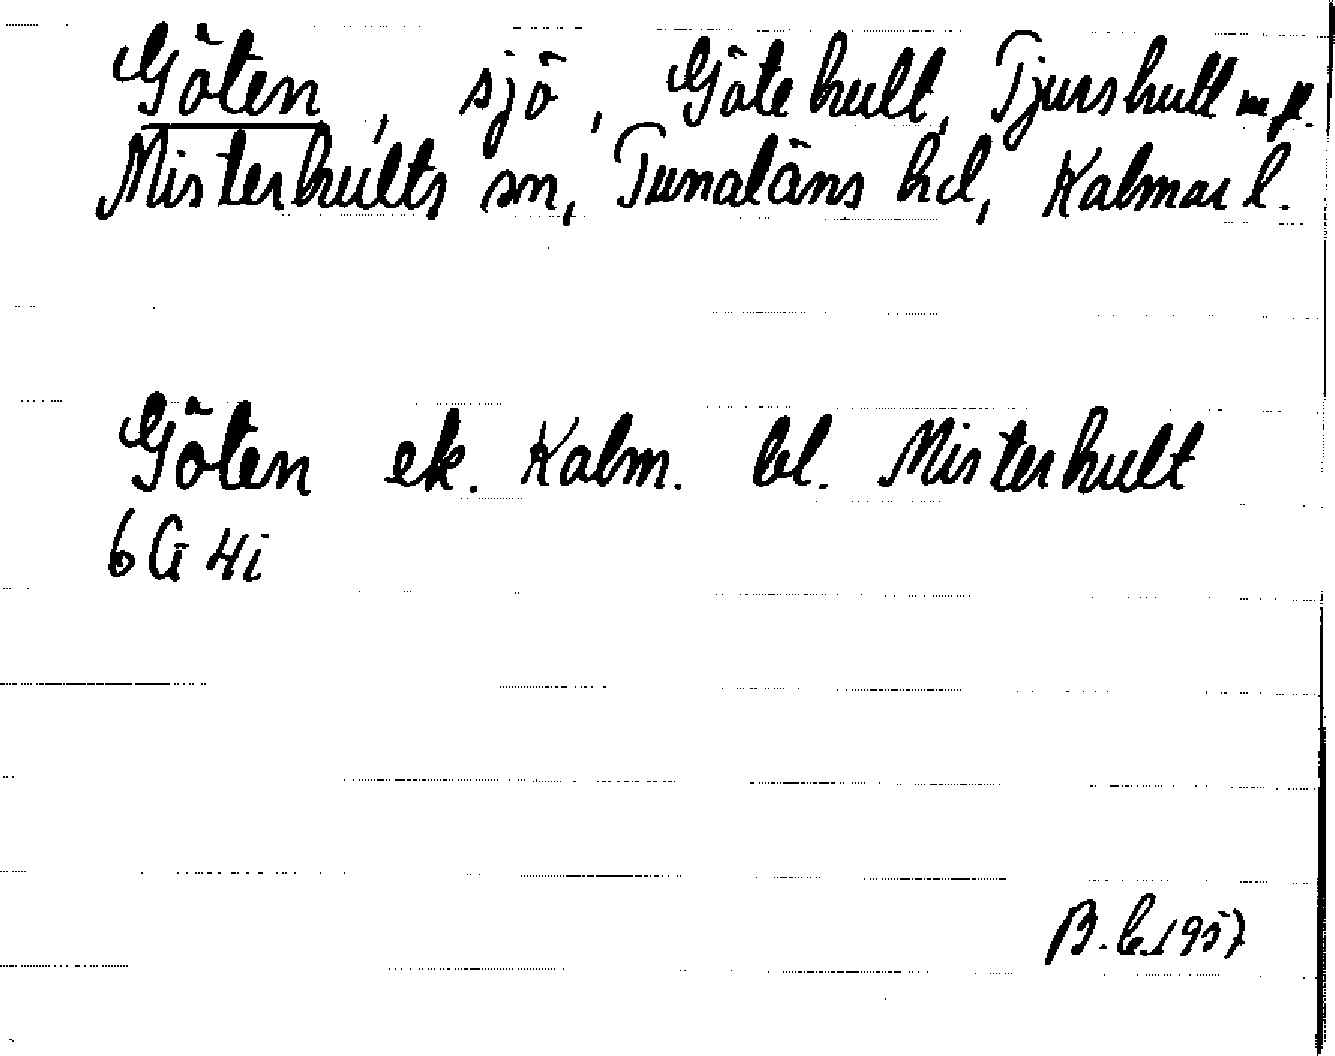 Göten, sjö, Götehult, Tjurshult m fl.
Misterhults sn, Tunaläns hd, Kalmar l.
Göten ek. Kalm. bl. Misterhult
6G 4i
1957